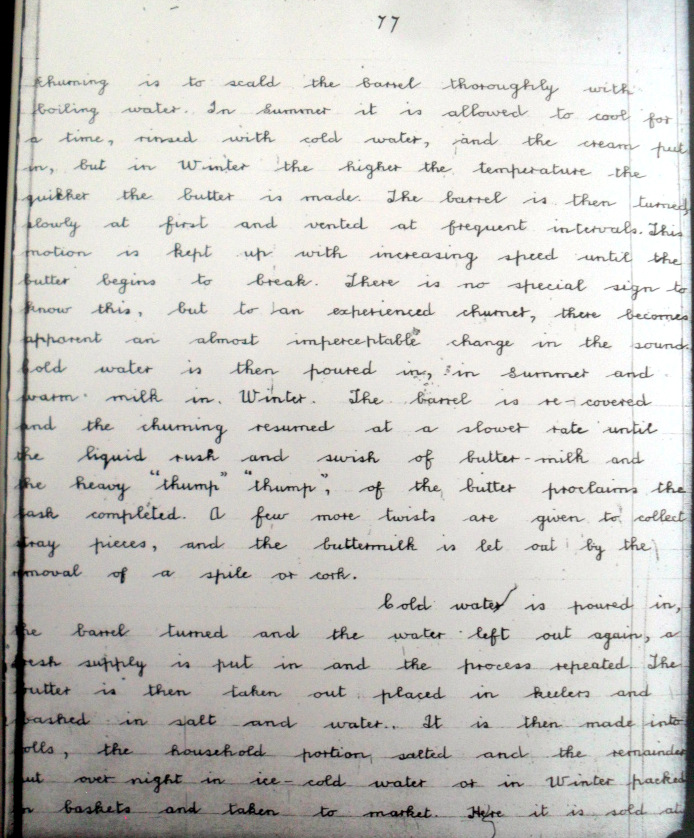 77
churning is to scald the barrel thoroughly with
boiling water. In Summer it is allowed to cool for
a time, rinsed with cold water, and the cream put
in, but in Winter the higher the temperature the
quikker the butter is made. The barrel is then turned,
slowly at first and vented at frequent intervals. This
motion is kept up with increasing speed until the
butter begins to break. There is no special sign to
know this, but to an experienced churner, there becomes
apparent an almost imperceptable change in the sound.
Cold water is then poured in, in Summer and
warm milk in Winter. The barrel is re-covered
and the churning resumed at a slower rate until
the liquid rush and swish of butter-milk and
the heavy "thump" "thump", of the butter proclaims the
task completed. A few more twists are given to collect
stray pieces, and the buttermilk is let out by the
removal of a spile or cork.
Cold water is poured in,
the barrel turned and the water left out again, a
fresh supply is put in and the process repeated. The
butter is then taken out placed in keelers and
washed in salt and water. It is then made into
rolls, the household portion salted and the remainder
put over night in ice-cold water or in Winter packed
in baskets and taken to market. Here it is sold at